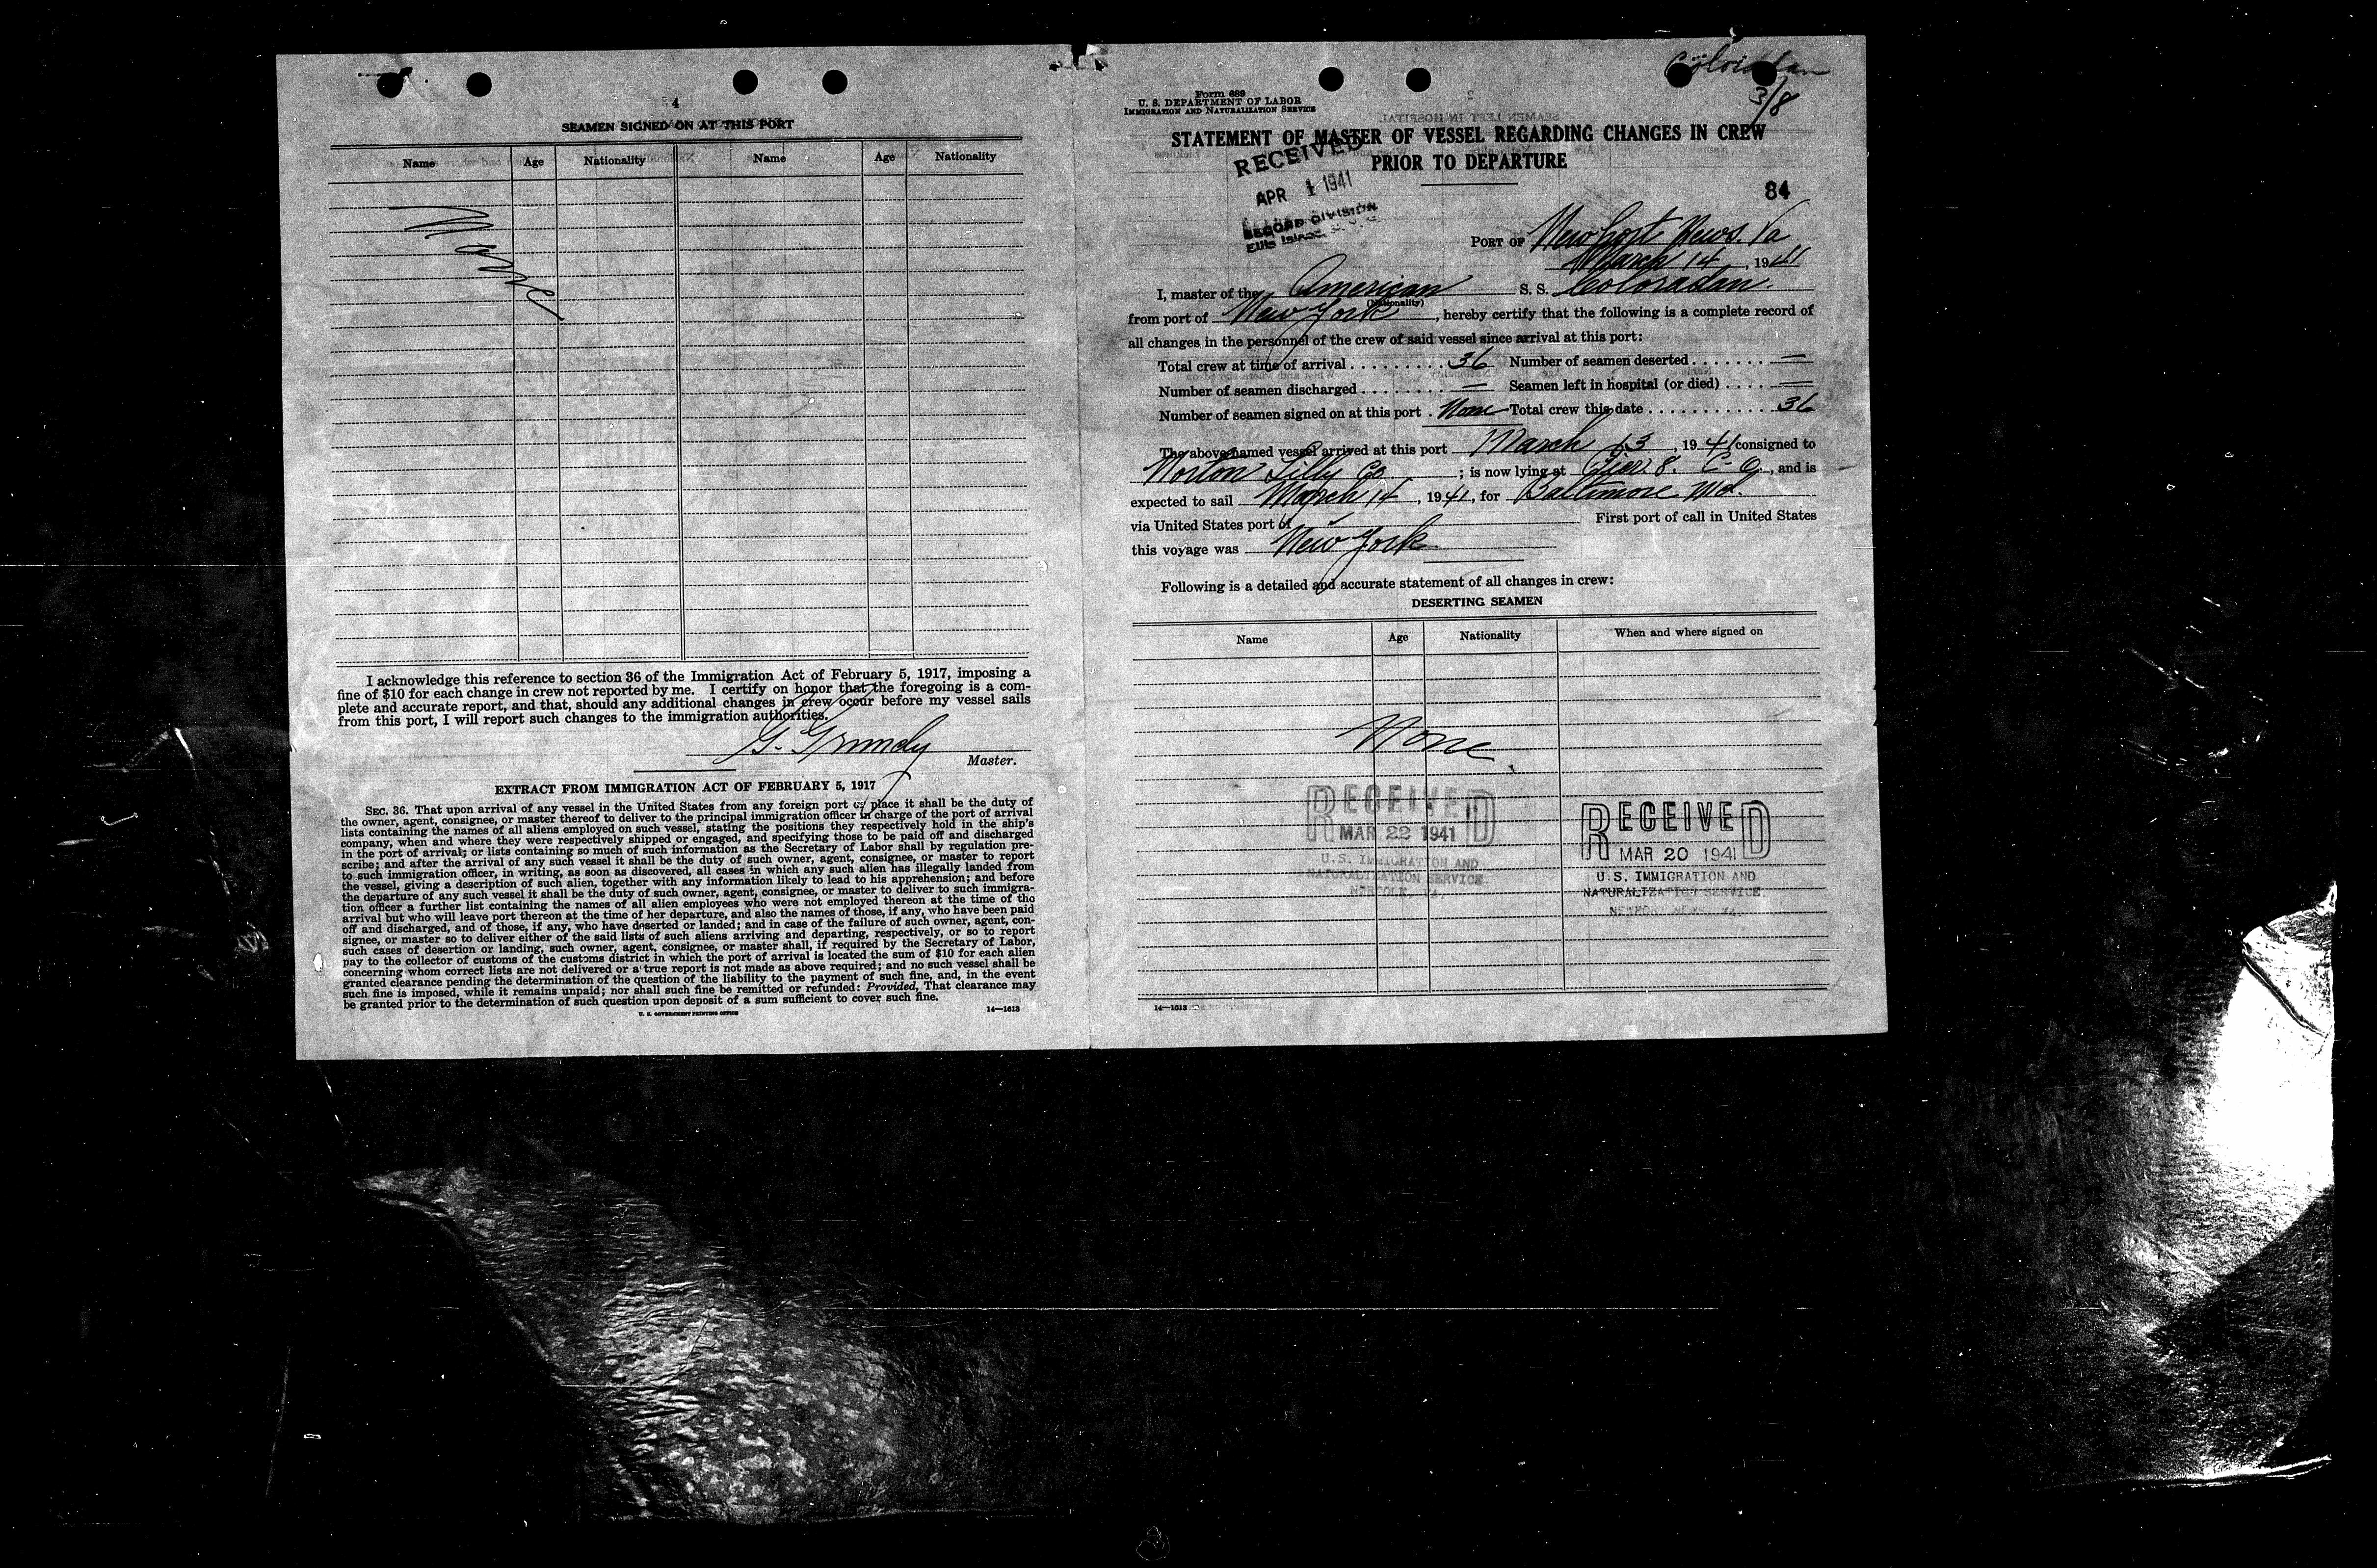 4
SEAMEN SIGNED ON AT THIS PORT
Name Age Nationality Name Age Nationality
None
I acknowledge this reference to section 36 of the Immigration Act of February 5, 1917, imposing a
fine of $10 for each change in crew not reported by me. I certify on honor that the foregoing is a com-
plete and accurate report, and that, should any additional changes in crew occur before my vessel sails
from this port, I will report such changes to the immigration authorities.
G. Grundy
Master.
EXTRACT FROM IMMIGRATION ACT OF FEBRUARY 5, 1917
SEC. 36. That upon arrival of any vessel in the United States from any foreign port or place it shall be the duty of
the owner, agent, consignee, or master thereof to deliver to the principal immigration officer in charge of the port of arrival
lists containing the names of all aliens employed on such vessel, stating the positions they respectively hold in the ship's
company, when and where they were respectively shipped or engaged, and specifying those to be paid off and discharged
in the port of arrival; or lists containing so much of such information as the Secretary of Labor shall by regulation pre-
scribe; and after the arrival of any such vessel it shall be the duty of such owner, agent, consignee, or master to report
to such immigration officer, in writing, as soon as discovered, all cases in which any such alien has illegally landed from
the vessel, giving a description of such alien, together with any information likely to lead to his apprehension; and before
the departure of any such vessel it shall be the duty of such owner, agent, consignee, or master to deliver to such immigra-
tion officer a further list containing the names of all alien employees who were not employed thereon at the time of the
arrival but who will leave port thereon at the time of her departure, and also the names of those, if any, who have been paid
off and discharged, and of those, if any, who have deserted or landed; and in case of the failure of such owner, agent, con-
signee, or master so to deliver either of the said lists of such aliens arriving and departing, respectively, or so to report
such cases of desertion or landing, such owner, agent, consignee, or master shall, if required by the Secretary of Labor,
pay to the collector of customs of the customs district in which the port of arrival is located the sum of $10 for each alien
concerning whom correct lists are not delivered or a true report is not made as above required; and no such vessel shall be
granted clearance pending the determination of the question of the liability to the payment of such fine, and, in the event
such fine is imposed, while it remains unpaid; nor shall such fine be remitted or refunded: Provided, That clearance may
be granted prior to the determination of such question upon deposit of a sum sufficient to cover such fine.
U. S. GOVERNMENT PRINTING OFFICE 14—1613
Coloradan
3/8
Form 689
U. S. DEPARTMENT OF LABOR
IMMIGRATION AND NATURALIZATION SERVICE
STATEMENT OF MASTER OF VESSEL REGARDING CHANGES IN CREW
PRIOR TO DEPARTURE
RECEIVED
APR 1 1941
RECORD DIVISION
Ellis Island
84
PORT OF Newport News. Va
March 14, 1941
I, master of the American S. S. Coloradan.
(Nationality)
from port of New York, hereby certify that the following is a complete record of
all changes in the personnel of the crew of said vessel since arrival at this port:
Total crew at time of arrival . . . . . . . . . 36 Number of seamen deserted . . . . . . . —
Number of seamen discharged . . . . . . . . — Seamen left in hospital (or died) . . . . —
Number of seamen signed on at this port . None Total crew this date . . . . . . . . . . . . 36
The above-named vessel arrived at this port March 13, 1941 consigned to
Norton Lilly Co ; is now lying at Pier 8. C-O, and is
expected to sail March 14, 1941, for Baltimore Md.
via United States port of First port of call in United States
this voyage was New York
Following is a detailed and accurate statement of all changes in crew:
DESERTING SEAMEN
Name Age Nationality When and where signed on
None
RECEIVED
MAR 22 1941
U.S. IMMIGRATION AND
NATURALIZATION SERVICE
NORFOLK VA.
RECEIVED
MAR 20 1941
U.S. IMMIGRATION AND
NATURALIZATION SERVICE
14—1613